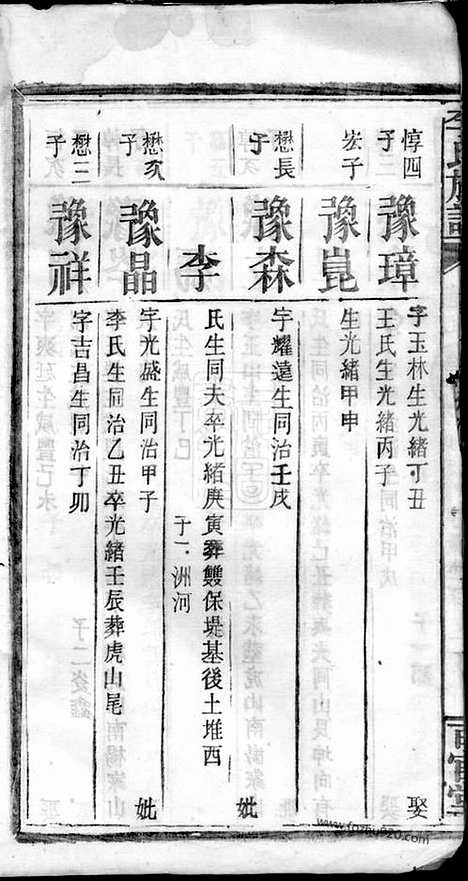 李氏族譜
惇四子
豫璋
字玉林生光緒丁丑 娶
王氏生光緒丙子
宏子
豫崑
生光緒甲申
懋長子
豫森
字耀遠生同治壬戌 妣
李
氏生同夫卒光緒庚寅葬雙保堤基後土堆西
子一 洲河
懋次子
豫晶
字光盛生同治甲子 妣
李氏生同治乙丑卒光緒壬辰葬虎山尾
懋三子
豫祥
字吉昌生同治丁卯
百官堂